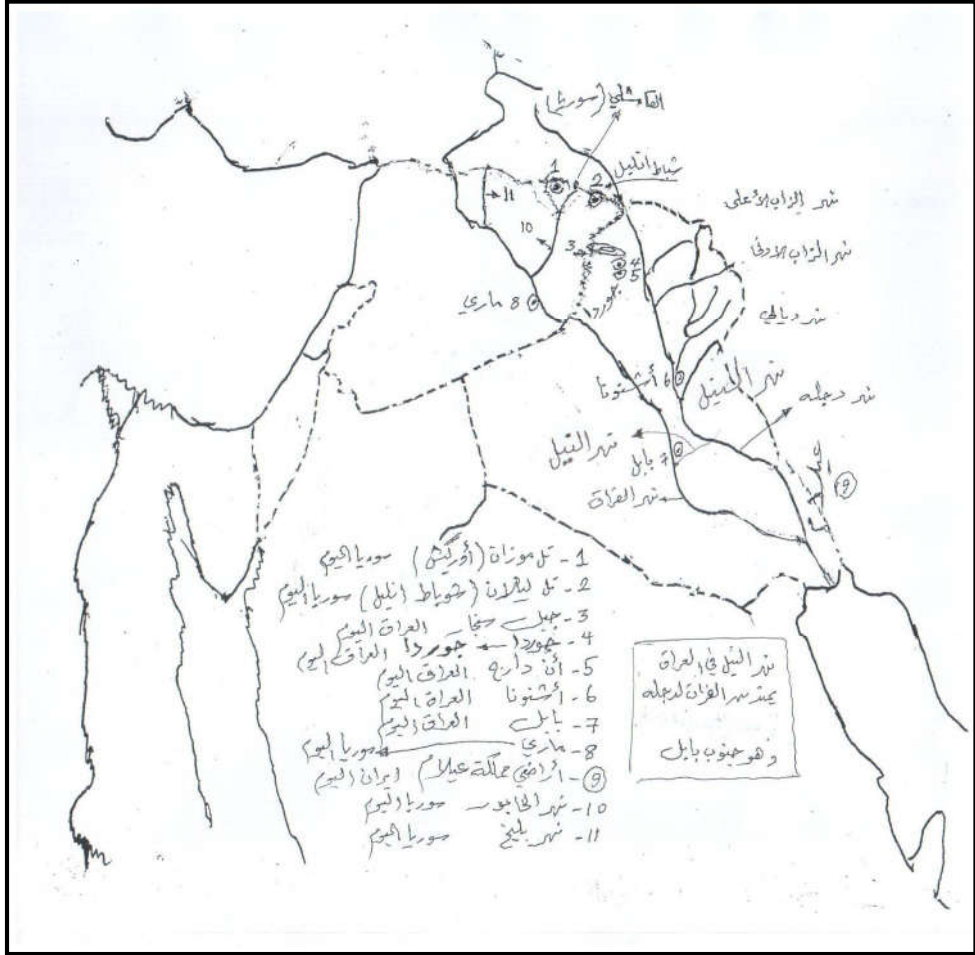 القامشلي (سوريا)
شباط انليل
1
2
نهر الزاب الأعلى
11
10
3
4
5
نهر الزاب الأدنى
8 ماري
نهر ديالى
6 أشنونا
نهر النيل
نهر دجله
نهر النيل
7 بابل
نهر الفرات
9
1- تل موزان (أوركيش) سوريا اليوم
2- تل ليلان (شوباط انليل) سوريا اليوم
3- جبل سنجار العراق اليوم
4- جوردا جوردا العراق اليوم
5- العراق اليوم
6- أشنونا العراق اليوم
7- بابل العراق اليوم
8- ماري سوريا اليوم
9- أراضي مملكة عيلام ايران اليوم
10- نهر الخابور سوريا اليوم
11- نهر بليخ سوريا اليوم
نهر النيل في العراق
يمتد من الفرات لدجله
وهو جنوب بابل